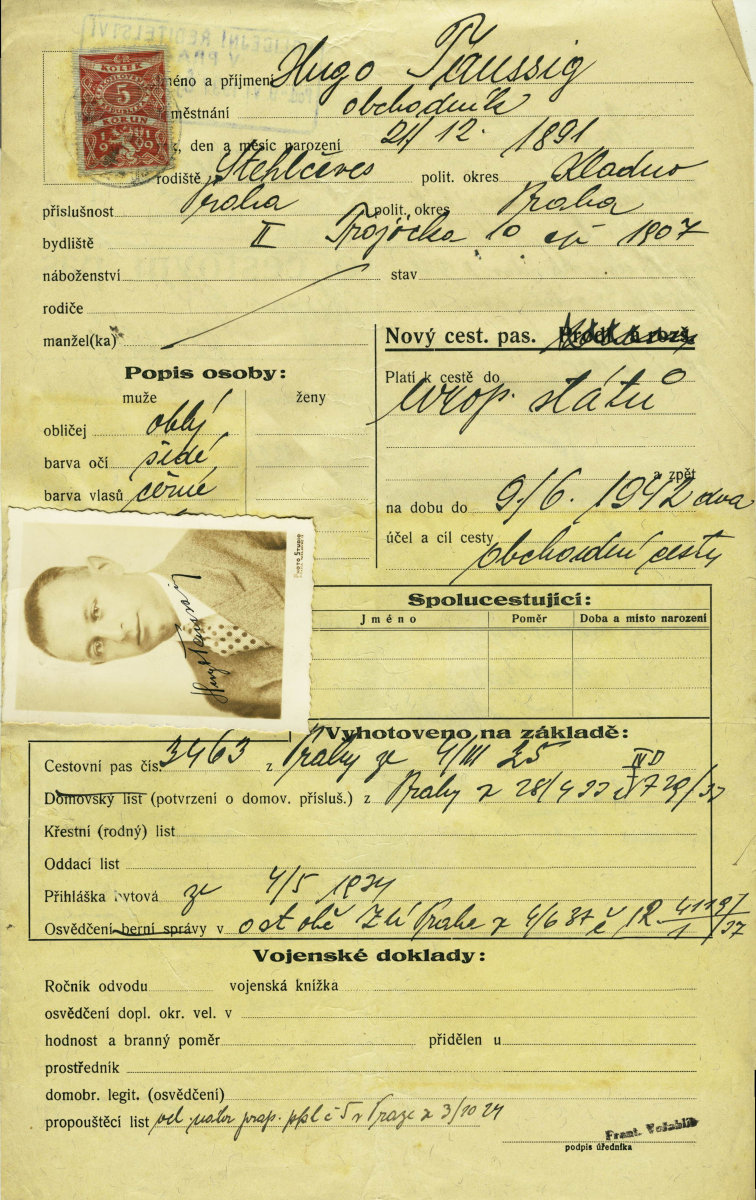 POLICEJNÍ ŘEDITELSTVÍ
V PRAZE
KOLEK
5
KORUN
Jméno a příjmení Hugo Taussig
městnání obchodník
den a měsíc narození 24/12. 1891
rodiště Stehlčeves polit. okres Kladno
příslušnost Praha polit. okres Praha
bydliště II Trojická 10 čp 1807
náboženství stav
rodiče
manžel(ka)
Nový cest. pas.
Popis osoby:
muže ženy
Platí k cestě do
evrop. států
obličej oblý
barva očí šedé
barva vlasů černé
a zpět
na dobu do 9./6. 1942 dva
účel a cíl cesty obchodní cesty
PHOTO STUDIO
Spolucestující:
Jméno Poměr Doba a místo narození
Vyhotoveno na základě:
Cestovní pas čís. 3463 z Prahy ze 4/III 25
IV D
Domovský list (potvrzení o domov. přísluš.) z Prahy z 28/4 33
Křestní (rodný) list
Oddací list
Přihláška bytová ze 4/5 1931
Osvědčení berní správy v Praze z 4/6 37 č
Vojenské doklady:
Ročník odvodu vojenská knížka
osvědčení dopl. okr. vel. v
hodnost a branný poměr přidělen u
prostředník
domobr. legit. (osvědčení)
propouštěcí list vel. prap. ppl č 5 v Praze z 3/10 24
Frant.
podpis úředníka